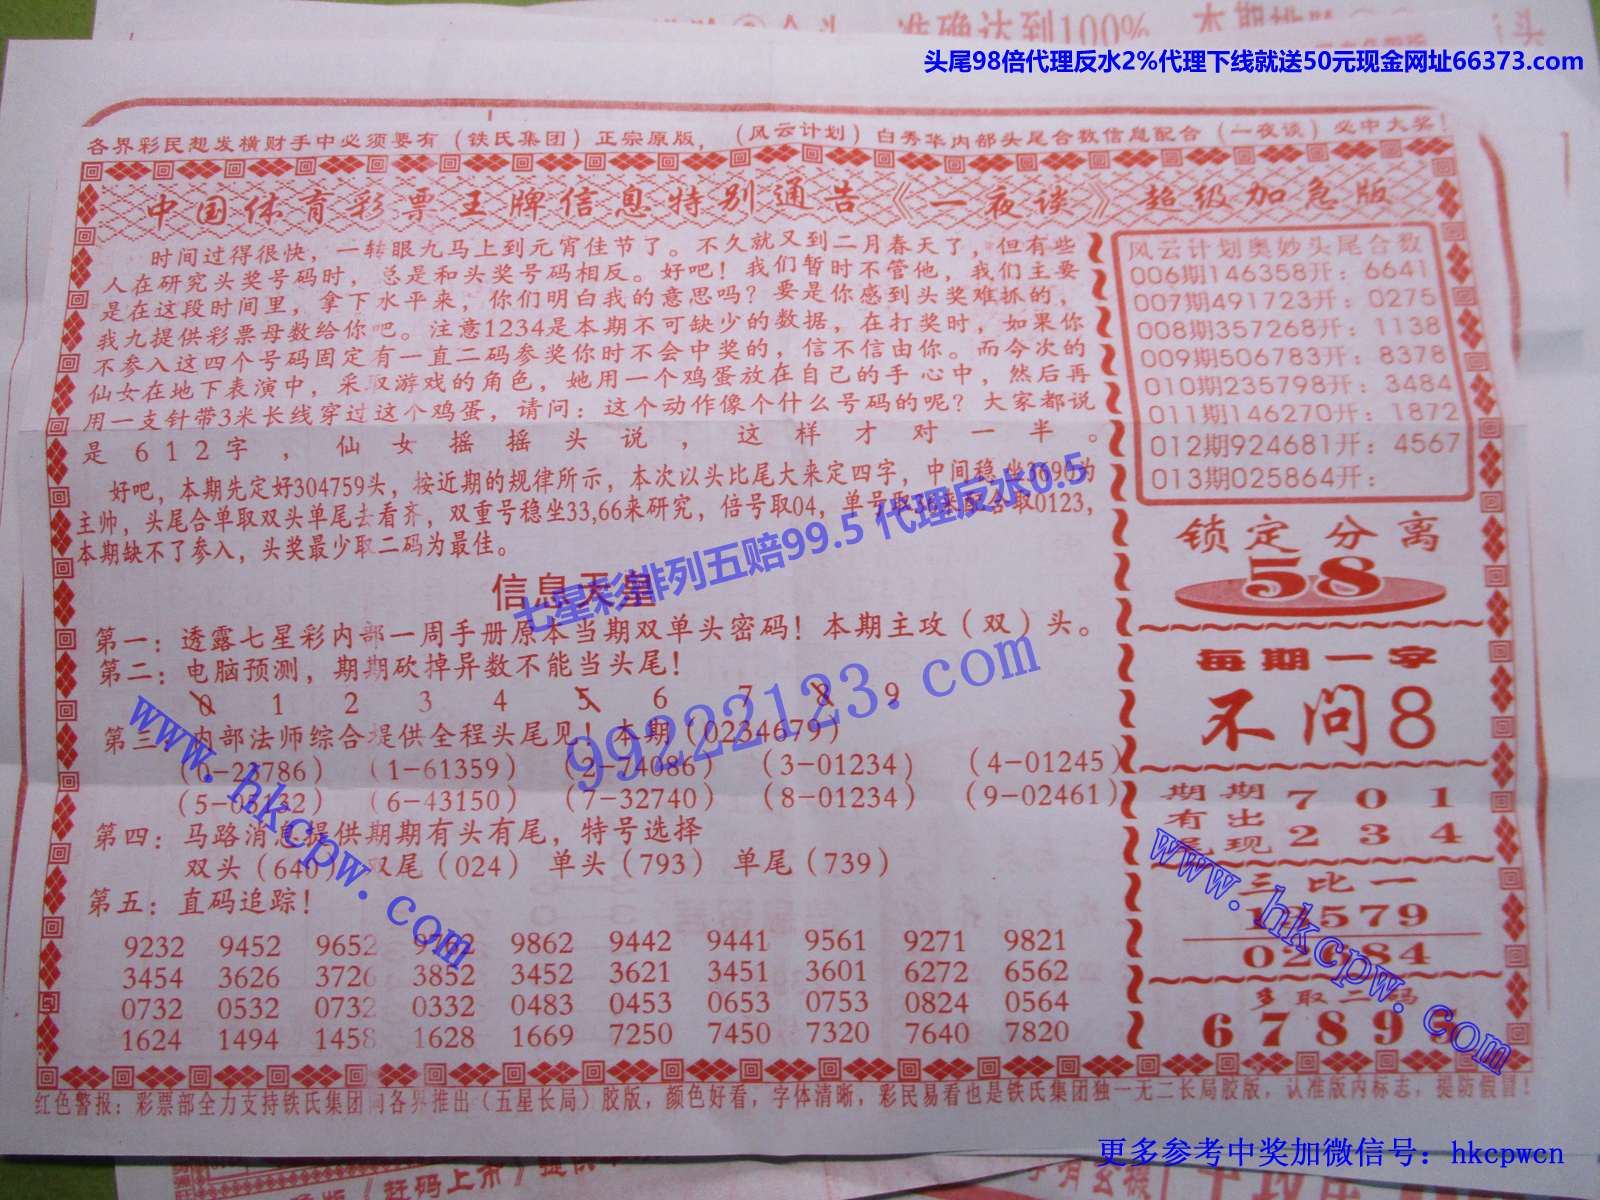 头尾98倍代理反水2%代理下线就送50元现金网址66373.com
各界彩民想发横财手中必须要有（铁氏集团）正宗原版，（风云计划）白秀华内部头尾合数信息配合（一夜谈）必中大奖！
中国体育彩票王牌信息特别通告《一夜谈》超级加急版
时间过得很快，一转眼九马上到元宵佳节了。不久就又到二月春天了，但有些
人在研究头奖号码时，总是和头奖号码相反。好吧！我们暂时不管他，我们主要
是在这段时间里，拿下水平来，你们明白我的意思吗？要是你感到头奖难抓的，
我九提供彩票母数给你吧。注意1234是本期不可缺少的数据，在打奖时，如果你
不参入这四个号码固定有一直二码参奖你时不会中奖的，信不信由你。而今次的
仙女在地下表演中，采取游戏的角色，她用一个鸡蛋放在自己的手心中，然后再
用一支针带3米长线穿过这个鸡蛋，请问：这个动作像个什么号码的呢？大家都说
是612字，仙女摇摇头说，这样才对一半。
好吧，本期先定好304759头，按近期的规律所示，本次以头比尾大来定四字，中间稳坐3690为
主帅，头尾合单取双头单尾去看齐，双重号稳坐33,66来研究，倍号取04，单号取36来配合取0123，
本期缺不了参入，头奖最少取二码为最佳。
七星彩排列五赔99.5 代理反水0.5
信息天皇
第一：透露七星彩内部一周手册原本当期双单头密码！本期主攻（双）头。
第二：电脑预测，期期砍掉异数不能当头尾！
0 1 2 3 4 5 6 7 8 9
第三：内部法师综合提供全程头尾见！本期（0234679）
（0-23786）（1-61359）（2-74086）（3-01234）（4-01245）
（5-03132）（6-43150）（7-32740）（8-01234）（9-02461）
第四：马路消息提供期期有头有尾，特号选择
双头（640）双尾（024）单头（793）单尾（739）
第五：直码追踪！
9232 9452 9652 9762 9862 9442 9441 9561 9271 9821
3454 3626 3726 3852 3452 3621 3451 3601 6272 6562
0732 0532 0732 0332 0483 0453 0653 0753 0824 0564
1624 1494 1458 1628 1669 7250 7450 7320 7640 7820
99222123.com
www.hkcpw.com
风云计划奥妙头尾合数
006期146358开：6641
007期491723开：0275
008期357268开：1138
009期506783开：8378
010期235798开：3484
011期146270开：1872
012期924681开：4567
013期025864开：
锁定分离
58
每期一字
不问8
期期 7 0 1
有出
尾现 2 3 4
三比一
13579
02684
多取二码
6 7 8 9 5
www.hkcpw.com
红色警报：彩票部全力支持铁氏集团向各界推出（五星长局）胶版，颜色好看，字体清晰，彩民易看也是铁氏集团独一无二长局胶版，认准版内标志，提防假冒！
更多参考中奖加微信号：hkcpwcn